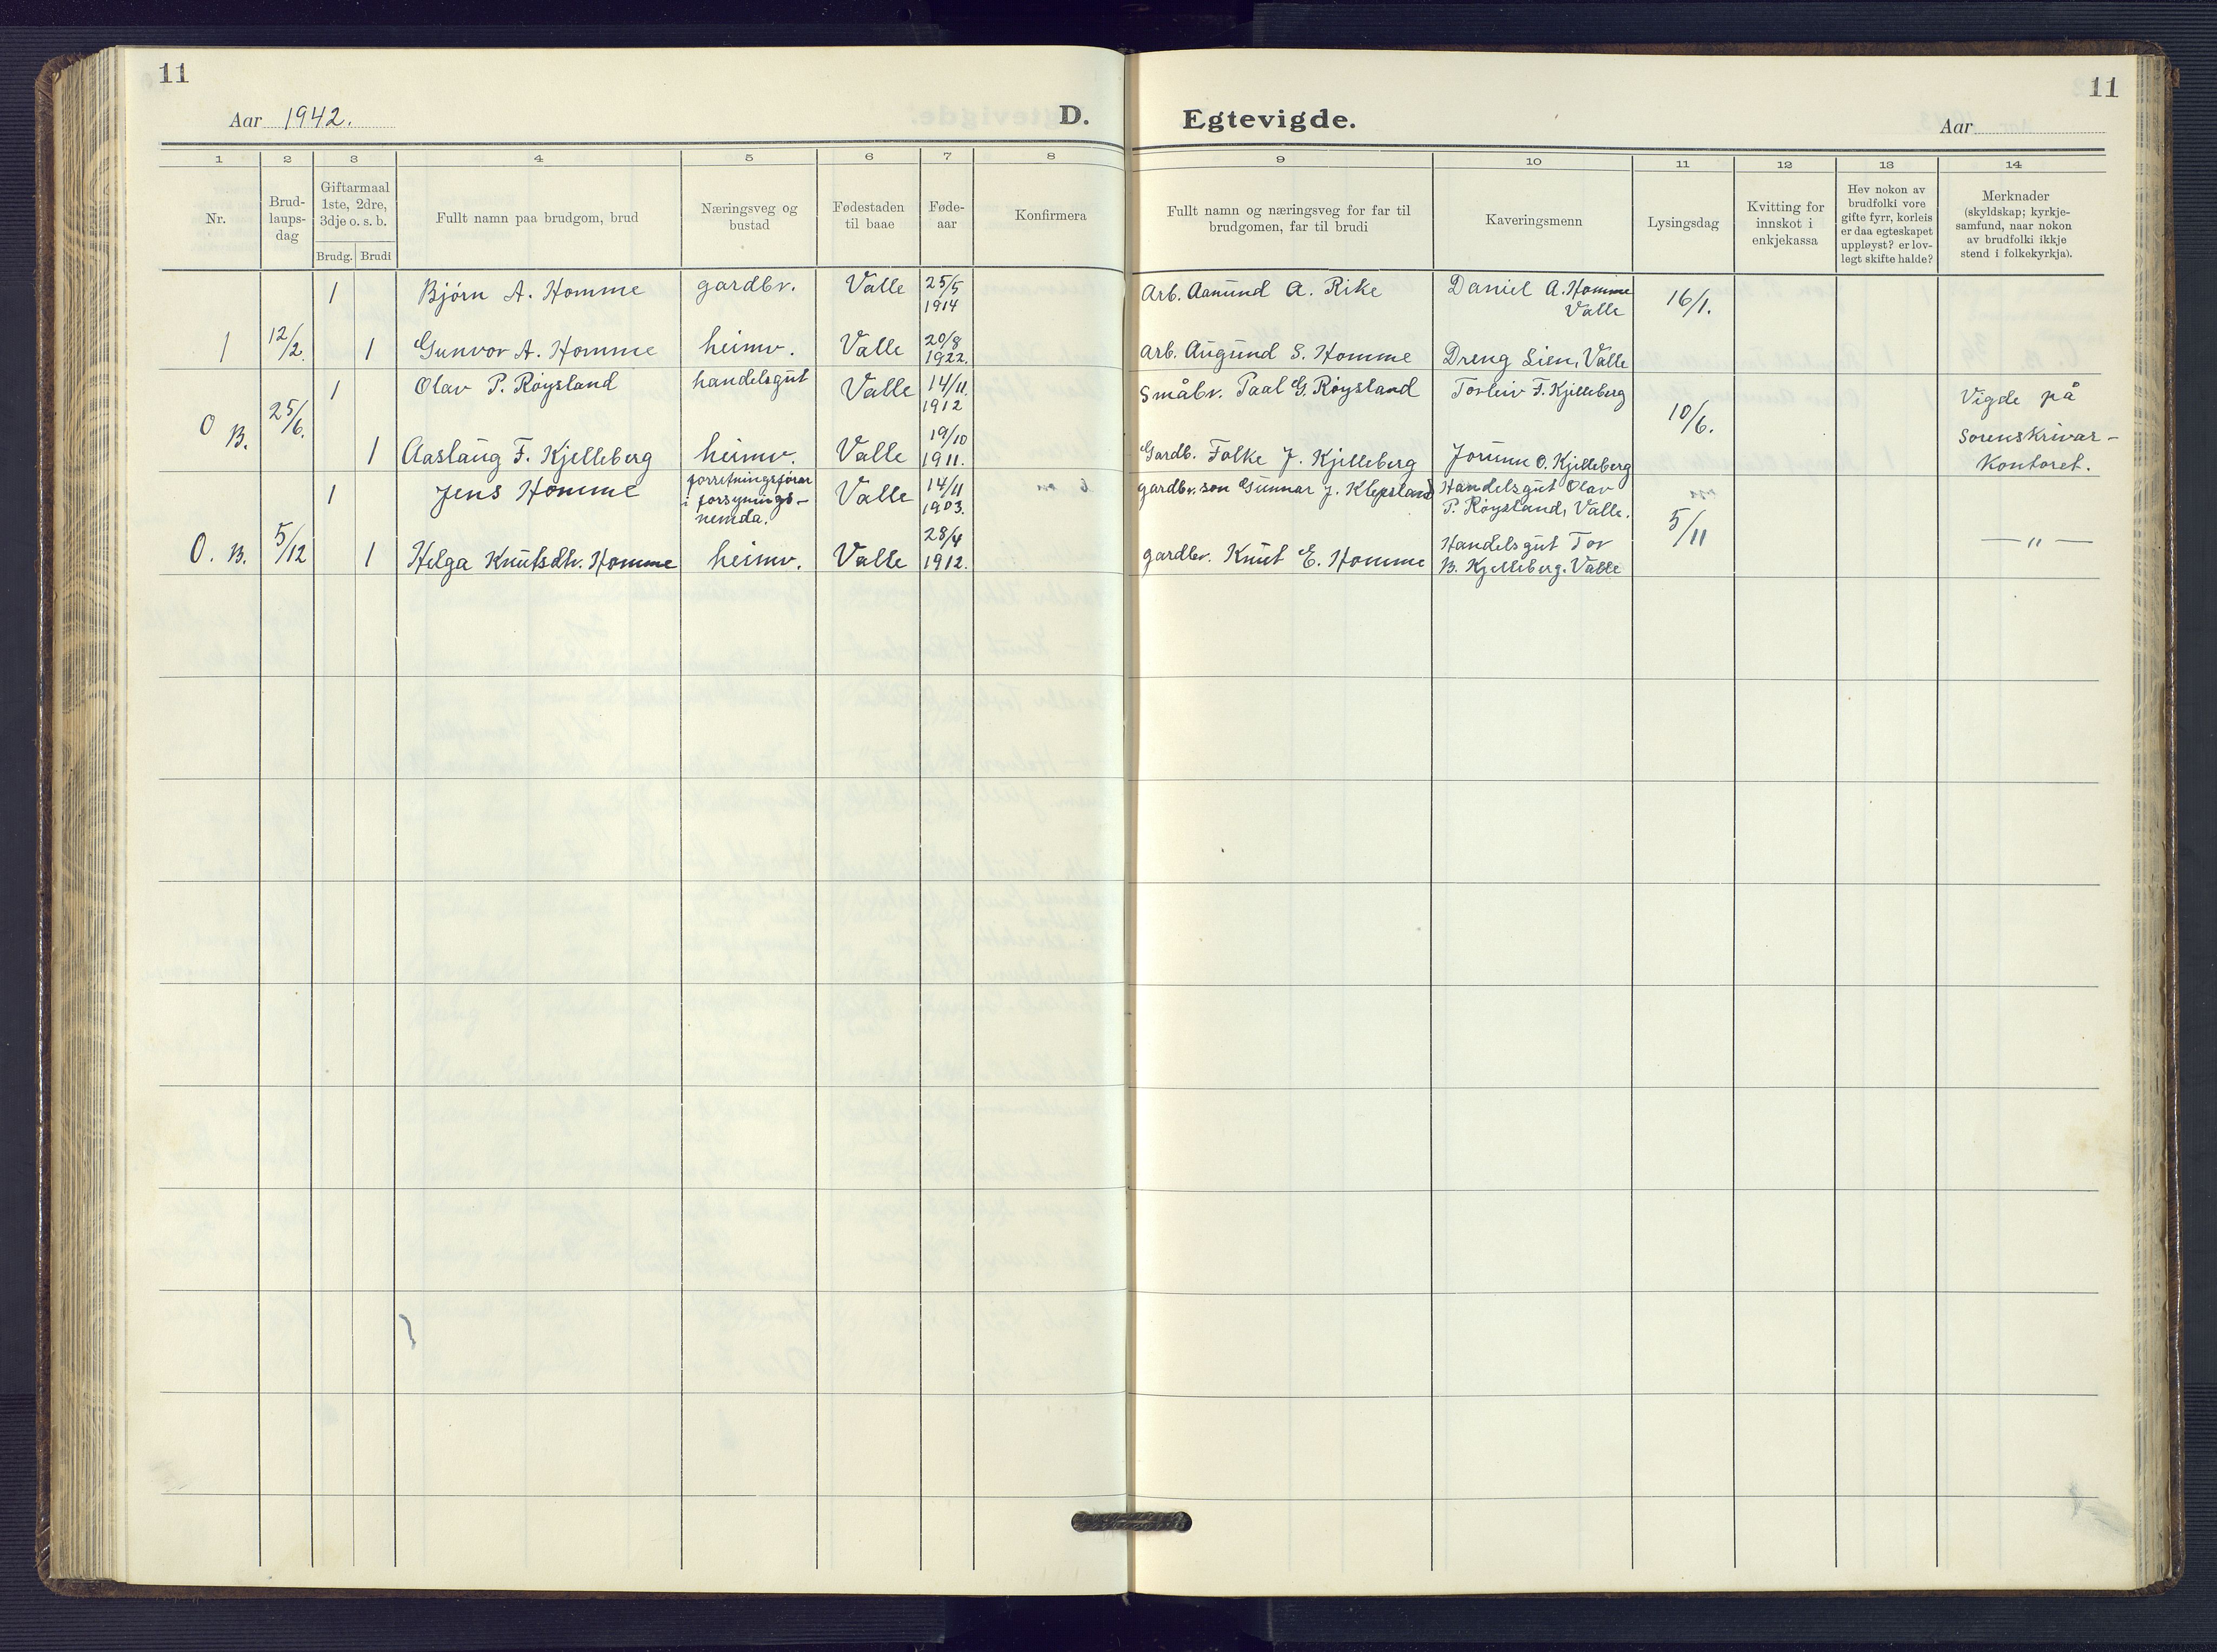 11
11
Aar 1942.
D.
Egtevigde.
Aar
1 2 3 4 5 6 7 8 9 10 11 12 13 14
Nr.
Brud-
laups-
dag
Giftarmaal
1ste, 2dre,
3dje o. s. b.
Brudg. Brudi
Fullt namn paa brudgom, brud
Næringsveg og
bustad
Fødestaden
til baae
Føde-
aar
Konfirmera
Fullt namn og næringsveg for far til
brudgomen, far til brudi
Kaveringsmenn
Lysingsdag
Kvitting for
innskot i
enkjekassa
Hev nokon av
brudfolki vore
gifte fyrr, korleis
er daa egteskapet
uppløyst? er lov-
legt skifte halde?
Merknader
(skyldskap; kyrkje-
samfund, naar nokon
av brudfolki ikkje
stend i folkekyrkja).
1 Bjørn A. Homme gardbr. Valle 25/5 1914 Arb. Aamund A. Rike Daniel A. Homme Valle 16/1.
1 12/2. 1 Gunvor A. Homme heimv. Valle 20/8 1922. Arb. Augund S. Homme Dreng Lien, Valle
1 Olav P. Røysland handelsgut Valle 14/11. 1912 Småbr. Paal G. Røysland Torleiv F. Kjelleberg Vigde på
O B. 25/6. 10/6.
1 Aaslaug F. Kjelleberg heimv. Valle 19/10 1911. Gardb. Folke J. Kjelleberg Jorunn O. Kjelleberg sorenskrivar-
kontoret.
1 Jens Homme forretningsførar i forsynings-nemda. Valle 14/11 1903. gardbr. son Gunnar J. Klepsland Handelsgut Olav
P. Røysland, Valle.
O. B. 5/12 1 Helga Knutsdtr. Homme heimv. Valle 28/4 1912. gardbr. Knut E. Homme Handelsgut Tor 5/11 — " —
B. Kjelleberg. Valle